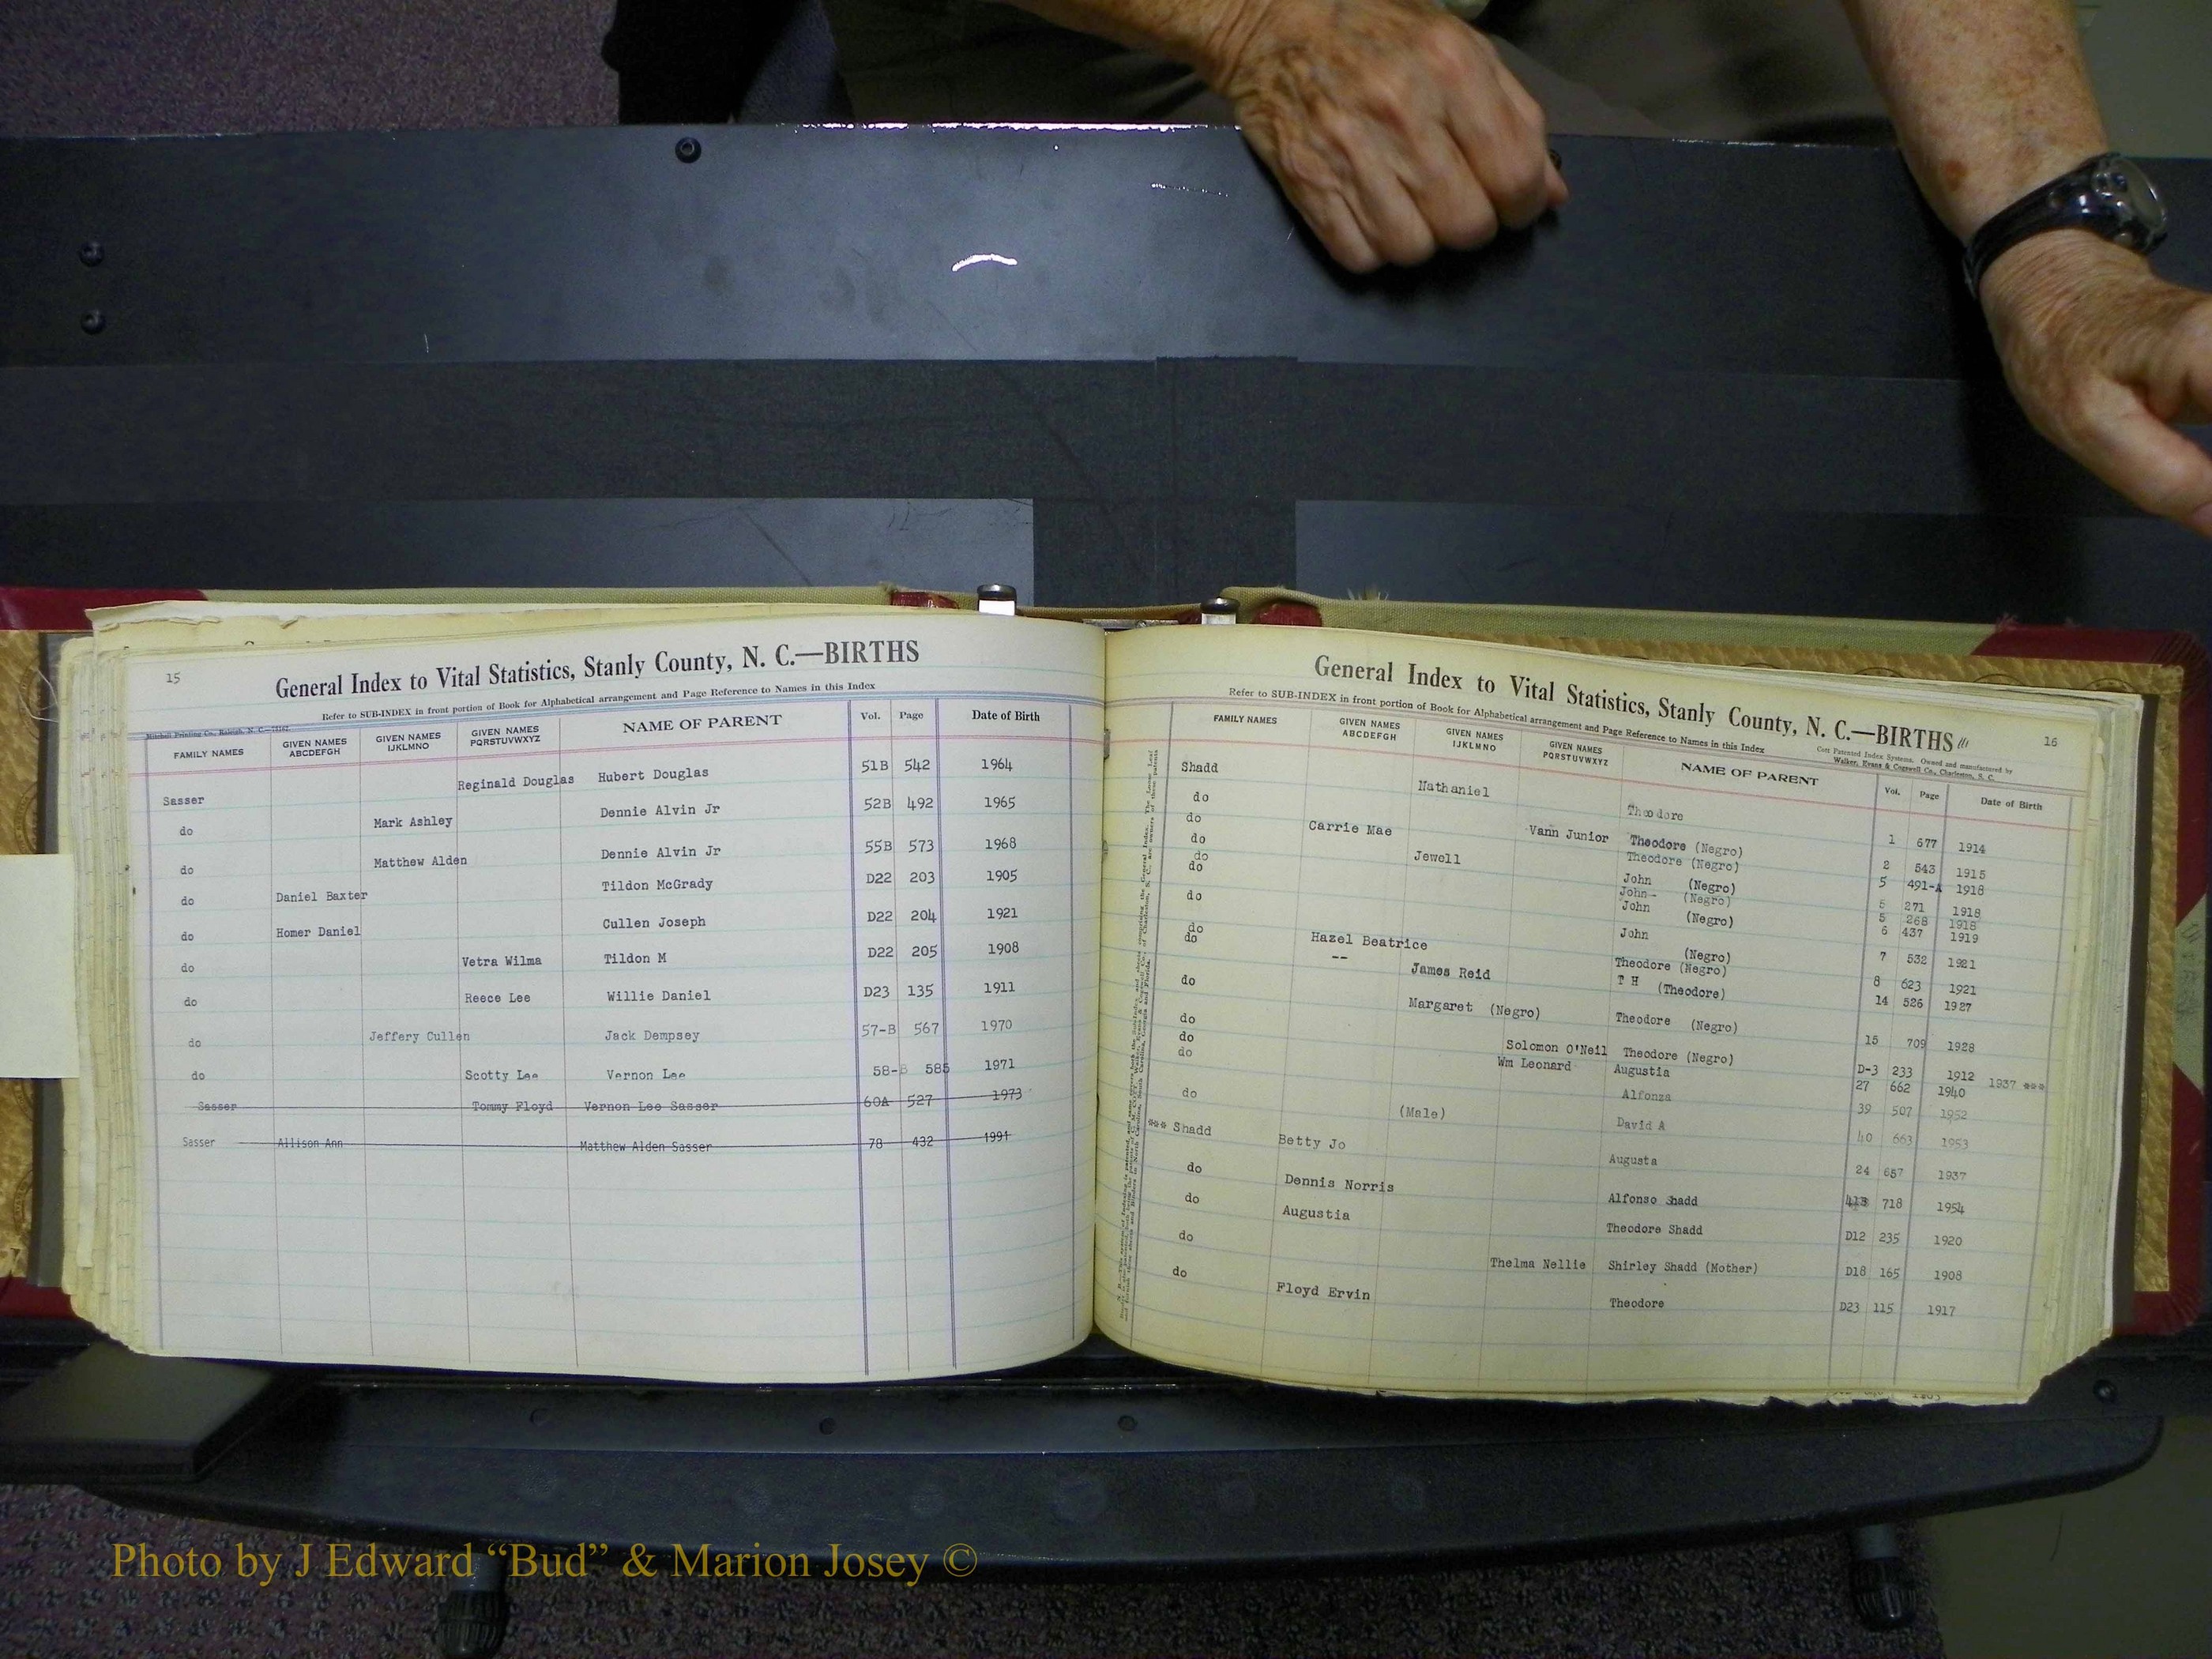 15
General Index to Vital Statistics, Stanly County, N. C.—BIRTHS
Refer to SUB-INDEX in front portion of Book for Alphabetical arrangement and Page Reference to Names in this Index
Mitchell Printing Co., Raleigh, N. C.
FAMILY NAMES GIVEN NAMES ABCDEFGH GIVEN NAMES IJKLMNO GIVEN NAMES PQRSTUVWXYZ NAME OF PARENT Vol. Page Date of Birth
Sasser Reginald Douglas Hubert Douglas 51B 542 1964
do Mark Ashley Dennie Alvin Jr 52B 492 1965
do Matthew Alden Dennie Alvin Jr 55B 573 1968
do Daniel Baxter Tildon McGrady D22 203 1905
do Homer Daniel Cullen Joseph D22 204 1921
do Vetra Wilma Tildon M D22 205 1908
do Reece Lee Willie Daniel D23 135 1911
do Jeffery Cullen Jack Dempsey 57-B 567 1970
do Scotty Lee Vernon Lee 58-B 585 1971
Sasser Tommy Floyd Vernon Lee Sasser 60A 527 1973
Sasser Allison Ann Matthew Alden Sasser 78 432 1991
General Index to Vital Statistics, Stanly County, N. C.—BIRTHS
16
Refer to SUB-INDEX in front portion of Book for Alphabetical arrangement and Page Reference to Names in this Index
Cott Patented Index Systems. Owned and manufactured by
Walker, Evans & Cogswell Co., Charleston, S. C.
FAMILY NAMES GIVEN NAMES ABCDEFGH GIVEN NAMES IJKLMNO GIVEN NAMES PQRSTUVWXYZ NAME OF PARENT Vol. Page Date of Birth
Shadd Nathaniel Theodore 1 677 1914
do Vann Junior Theodore (Negro) 2 543 1915
do Carrie Mae Theodore (Negro) 5 491-A 1918
do Jewell John (Negro) 5 271 1918
do John (Negro) 5 268 1918
do John (Negro) 6 437 1919
do John (Negro) 7 532 1921
do Hazel Beatrice Theodore (Negro) 8 623 1921
do -- James Reid T H (Theodore) 14 526 1927
do Margaret (Negro) Theodore (Negro) 15 709 1928
do Solomon O'Neil Theodore (Negro) D-3 233 1912
do Wm Leonard Augustia 27 662 1940 1937 ***
do Alfonza 39 507 1952
do (Male) David A 40 663 1953
*** Shadd Betty Jo Augusta 24 657 1937
do Dennis Norris Alfonso Shadd 718 1954
do Augustia Theodore Shadd D12 235 1920
do Thelma Nellie Shirley Shadd (Mother) D18 165 1908
do Floyd Ervin Theodore D23 115 1917
Photo by J Edward “Bud” & Marion Josey ©